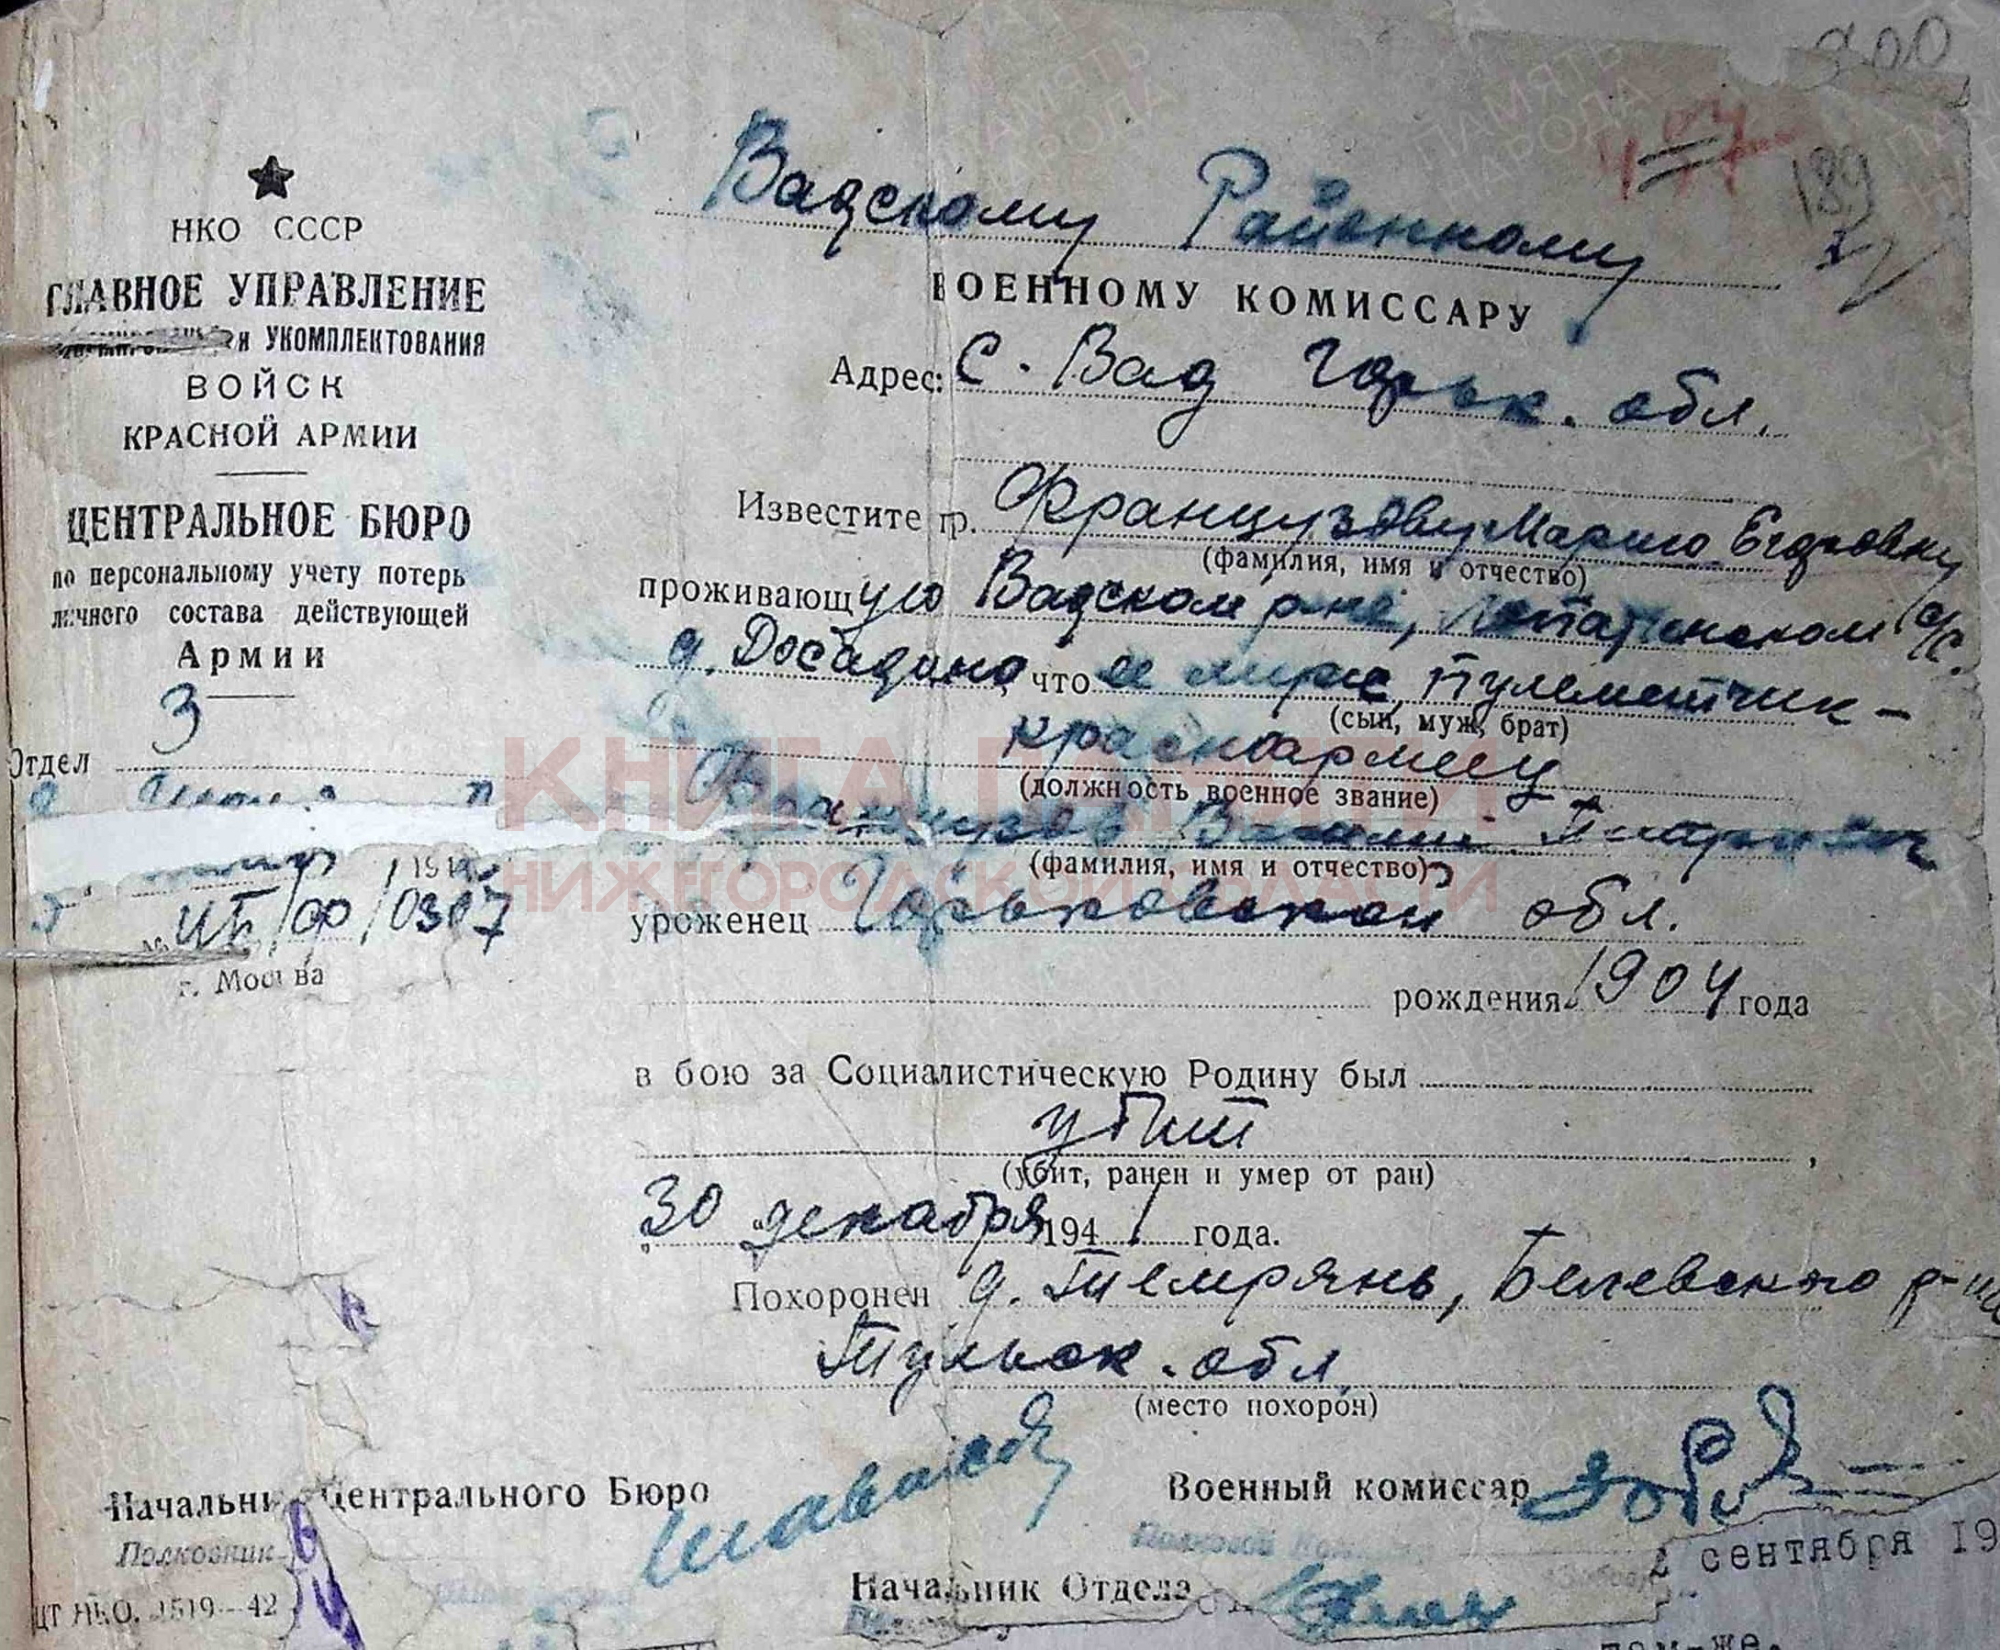 900
189
НКО СССР
ГЛАВНОЕ УПРАВЛЕНИЕ
и УКОМПЛЕКТОВАНИЯ
ВОЙСК
КРАСНОЙ АРМИИ
ЦЕНТРАЛЬНОЕ БЮРО
по персональному учету потерь
личного состава действующей
Армии
Отдел 3
194
№ ЦБ/ФР/0307
г. Москва
Вадскому Районному
ВОЕННОМУ КОМИССАРУ
Адрес: С. Вад Горьк. обл.
Известите гр. Французову Марию Егоровну
(фамилия, имя и отчество)
проживающую Вадском р-не, Лопатинском с/с.
д. Досадино, что ее муж, пулеметчик-
(сын, муж, брат)
красноармеец
(должность военное звание)
Французов Василий
(фамилия, имя и отчество)
уроженец Горьковской обл.
рождения 1904 года
в бою за Социалистическую Родину был
убит
(убит, ранен и умер от ран)
"30" декабря 1941 года.
Похоронен д. Темрянь, Белевского р-на
Тульск. обл.
(место похорон)
Начальник Центрального Бюро
Полковник
Военный комиссар
Полковой
Начальник Отдела
ЦТ НКО. 1519—42
сентября 19
там-же.
КНИГА ПАМЯТИ
НИЖЕГОРОДСКОЙ ОБЛАСТИ
ПАМЯТЬ НАРОДА